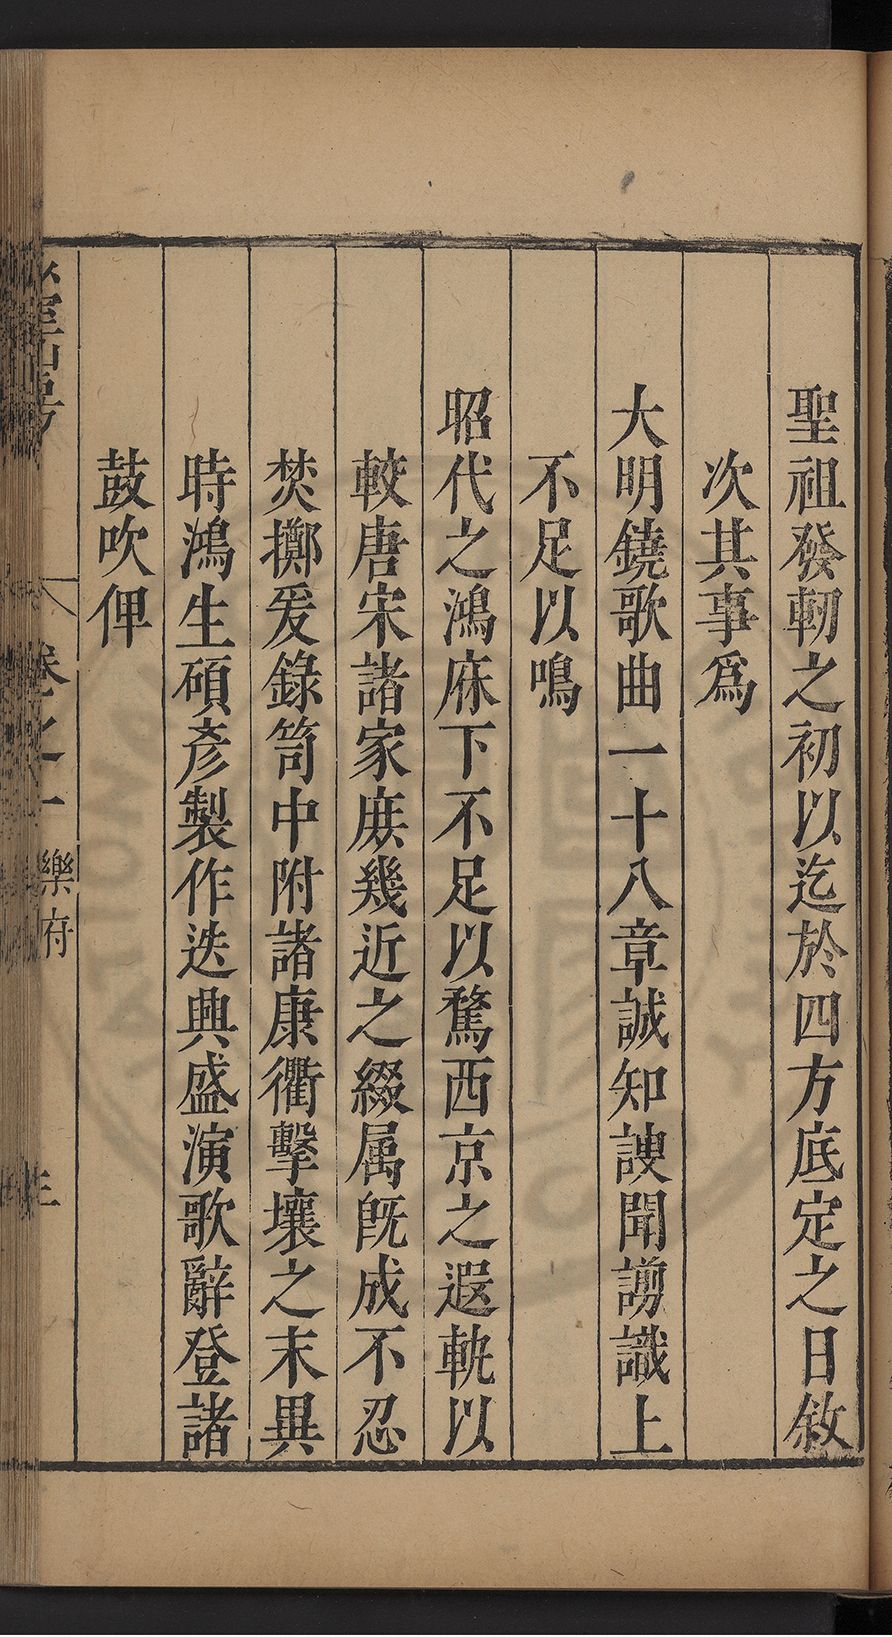 聖祖發軔之初以迄於四方底定之日敘
次其事爲
大明鐃歌曲一十八章誠知謏聞謭識上
不足以鳴
昭代之鴻庥下不足以騖西京之遐軌以
較唐宋諸家庻幾近之綴属旣成不忍
焚擲爰錄笥中附諸康衢擊壤之末異
時鴻生碩彥製作迭興盛演歌辭登諸
鼓吹俾
卷之一 樂府